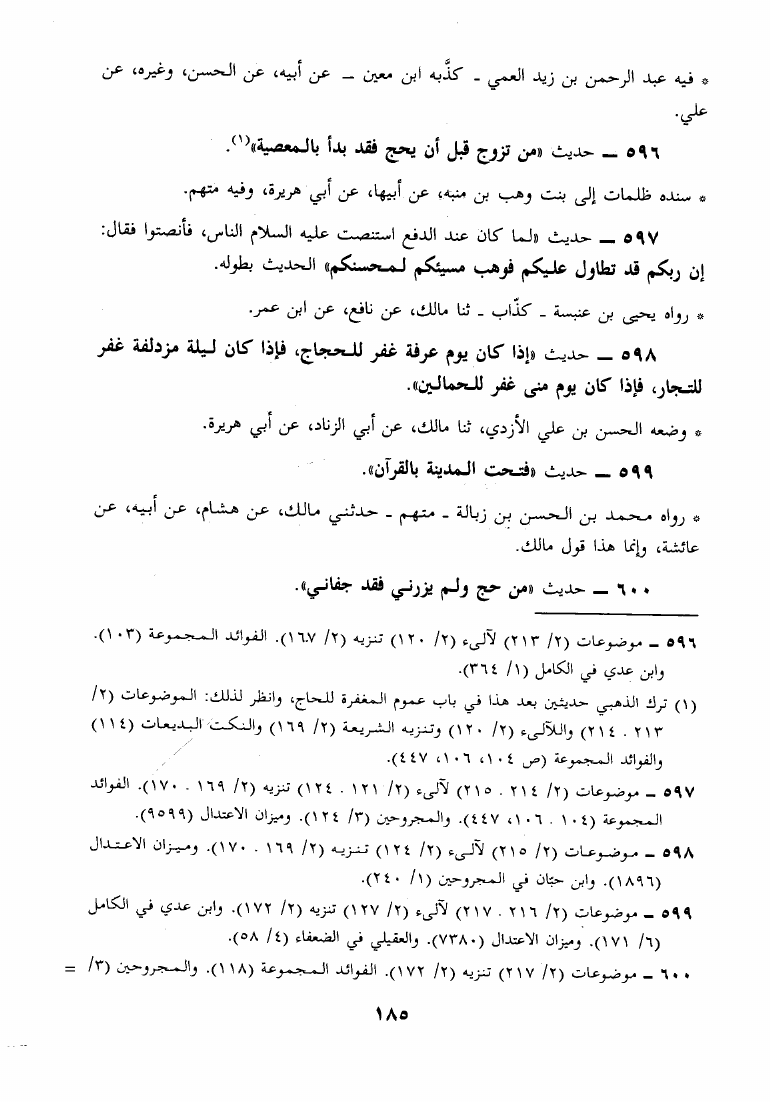 * فيه عبد الرحمن بن زيد العمي - كذَّبه ابن معين - عن أبيه، عن الحسن، وغيره، عن
علي.
٥٩٦ — حديث «من تزوج قبل أن يحج فقد بدأ بالمعصية»(١).
* سنده ظلمات إلى بنت وهب بن منبه، عن أبيها، عن أبي هريرة، وفيه متهم.
٥٩٧ — حديث «لما كان عند الدفع استنصت عليه السلام الناس، فأنصتوا فقال:
إن ربكم قد تطاول عليكم فوهب مسيئكم لمحسنكم» الحديث بطوله.
* رواه يحيى بن عنبسة - كذّاب - ثنا مالك، عن نافع، عن ابن عمر.
٥٩٨ — حديث «إذا كان يوم عرفة غفر للحجاج، فإذا كان ليلة مزدلفة غفر
للتجار، فإذا كان يوم منى غفر للحمالين».
* وضعه الحسن بن علي الأزدي، ثنا مالك، عن أبي الزناد، عن أبي هريرة.
٥٩٩ — حديث «فتحت المدينة بالقرآن».
* رواه محمد بن الحسن بن زبالة - متهم - حدثني مالك، عن هشام، عن أبيه، عن
عائشة، وإنما هذا قول مالك.
٦٠٠ — حديث «من حج ولم يزرني فقد جفاني».
٥٩٦ - موضوعات (٢/ ٢١٣) لآلىء (٢/ ١٢٠) تنزيه (٢/ ١٦٧). الفوائد المجموعة (١٠٣).
وابن عدي في الكامل (١/ ٣٦٤).
(١) ترك الذهبي حديثين بعد هذا في باب عموم المغفرة للحاج، وانظر لذلك: الموضوعات (٢/
٢١٣ . ٢١٤) واللآلىء (٢/ ١٢٠) وتنزيه الشريعة (٢/ ١٦٩) والنكت البديعات (١١٤)
والفوائد المجموعة (ص ١٠٤، ١٠٦، ٤٤٧).
٥٩٧ - موضوعات (٢/ ٢١٤ . ٢١٥) لآلىء (٢/ ١٢١ . ١٢٤) تنزيه (٢/ ١٦٩ . ١٧٠). الفوائد
المجموعة (١٠٤ . ١٠٦، ٤٤٧). والمجروحين (٣/ ١٢٤). وميزان الاعتدال (٩٥٩٩).
٥٩٨ - موضوعات (٢/ ٢١٥) لآلىء (٢/ ١٢٤) تنزيه (٢/ ١٦٩ . ١٧٠). وميزان الاعتدال
(١٨٩٦). وابن حبّان في المجروحين (١/ ٢٤٠).
٥٩٩ - موضوعات (٢/ ٢١٦ . ٢١٧) لآلىء (٢/ ١٢٧) تنزيه (٢/ ١٧٢). وابن عدي في الكامل
(٦/ ١٧١). وميزان الاعتدال (٧٣٨٠). والعقيلي في الضعفاء (٤/ ٥٨).
٦٠٠ - موضوعات (٢/ ٢١٧) تنزيه (٢/ ١٧٢). الفوائد المجموعة (١١٨). والمجروحين (٣/ =
١٨٥